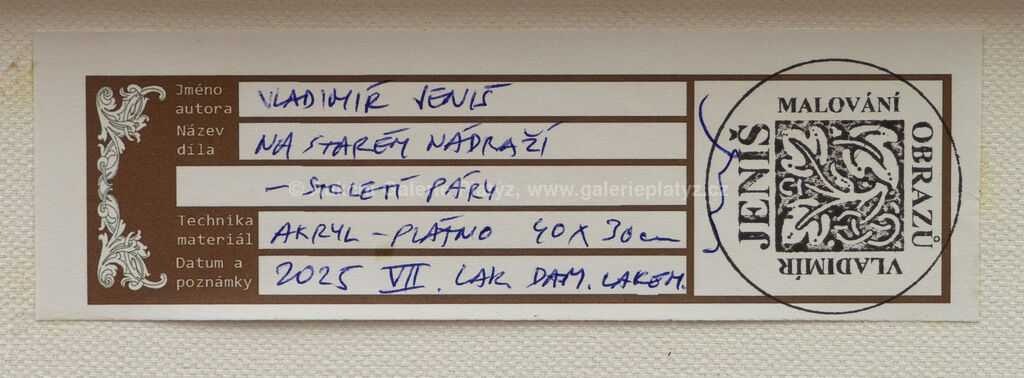 Jméno autora VLADIMÍR JENIŠ
Název díla NA STARÉM NÁDRAŽÍ
– STOLETÍ PÁRY
Technika materiál AKRYL – PLÁTNO 40 X 30 cm
Datum a poznámky 2025 VII. LAK. DAM. LAKEM.
MALOVÁNÍ
OBRAZŮ
VLADIMÍR
JENIŠ
www.galerieplatyz.cz